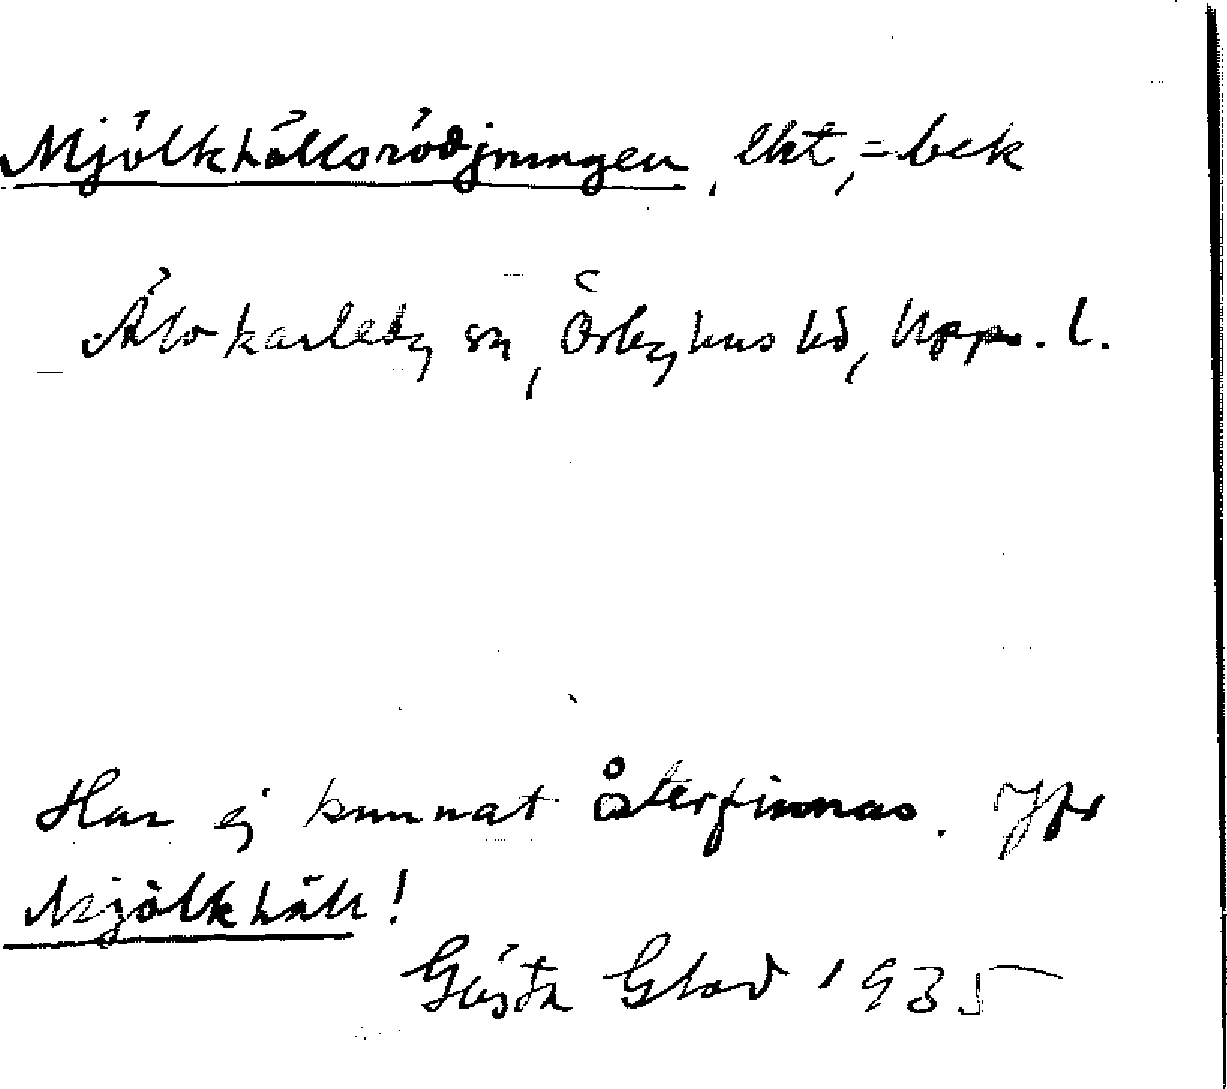 Mjölkhällsrödjningen, lht, =bek
Älvkarleby sn, Örbyhus hd, Upps. l.
Har ej kunnat återfinnas. Jfr
Mjölkhäll!
Gösta 1935